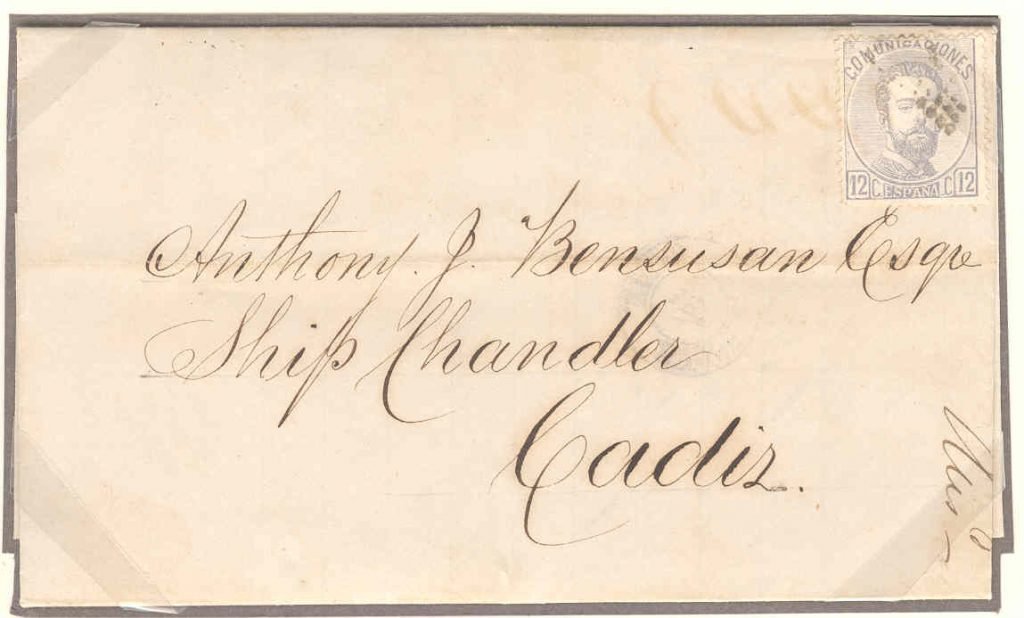 COMUNICACIONES
12 C. ESPAÑA. C 12
Anthony. J. Bensusan Esqre
Ship Chandler
Cadiz.